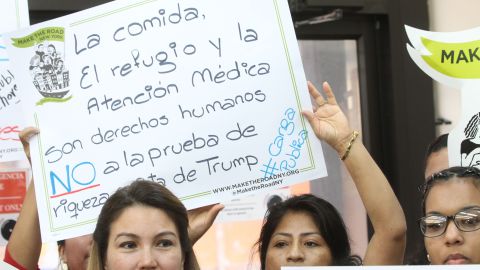 MAKE THE ROAD
NEW YORK
La comida,
El refugio y la
Atención Médica
son derechos humanos
NO a la prueba de
riqueza de Trump
#Carga
Pública
WWW.MAKETHEROADNY.ORG
#MaketheRoadNY
MAKE